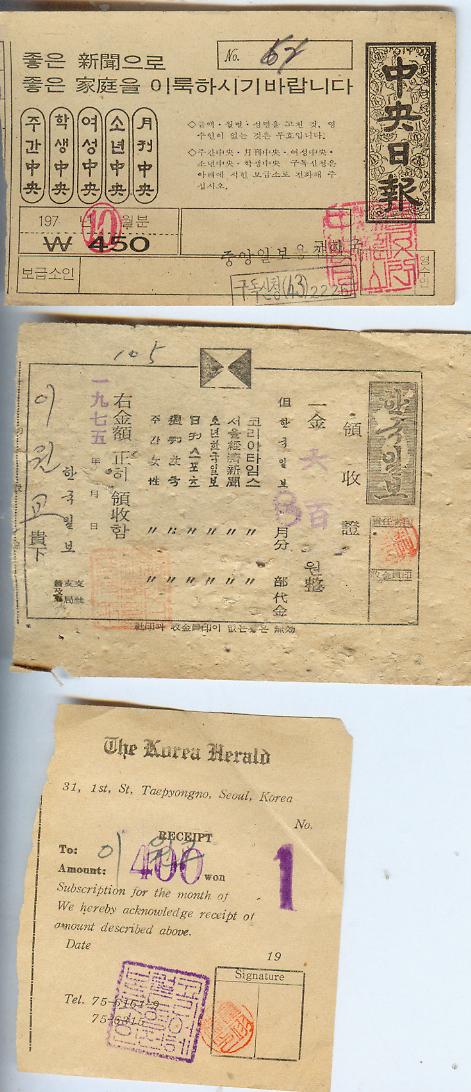 좋은 新聞으로
좋은 家庭을 이룩하시기바랍니다
No. 62
中央日報
주간中央
학생中央
여성中央
소년中央
月刊中央
◇금액・월별・성명을 고친 것, 영
수인이 없는 것은 무효입니다.
◇주간中央・月刊中央・여성中央・
소년中央・학생中央 구독신청은
아래에 적힌 보급소로 전화해 주
십시오.
197 년 10 월분
₩ 450
보급소인
영수인
중앙일보
구독신청 (63) 2226
105
한국일보
領收證
一金 六百 원整
但 한국일보 8 月分 部代金
코리아타임스 〃 〃
서울經濟新聞 〃 〃
소년한국일보 〃 〃
日刊스포츠 〃 〃
週刊한국 〃 〃
주간女性 〃 〃
右金額 正히 領收함
一九七五年 月 日
한국일보
支社
支局
普及所
이원교 貴下
社印과 收金員印이 없는것은 無効
The Korea Herald
31, 1st, St, Taepyongno, Seoul, Korea
No.
RECEIPT
To: 이원교
Amount: 400 won
1
Subscription for the month of
We hereby acknowledge receipt of
amount described above.
Date 19
Signature
Tel. 75-6151-9
75-6415